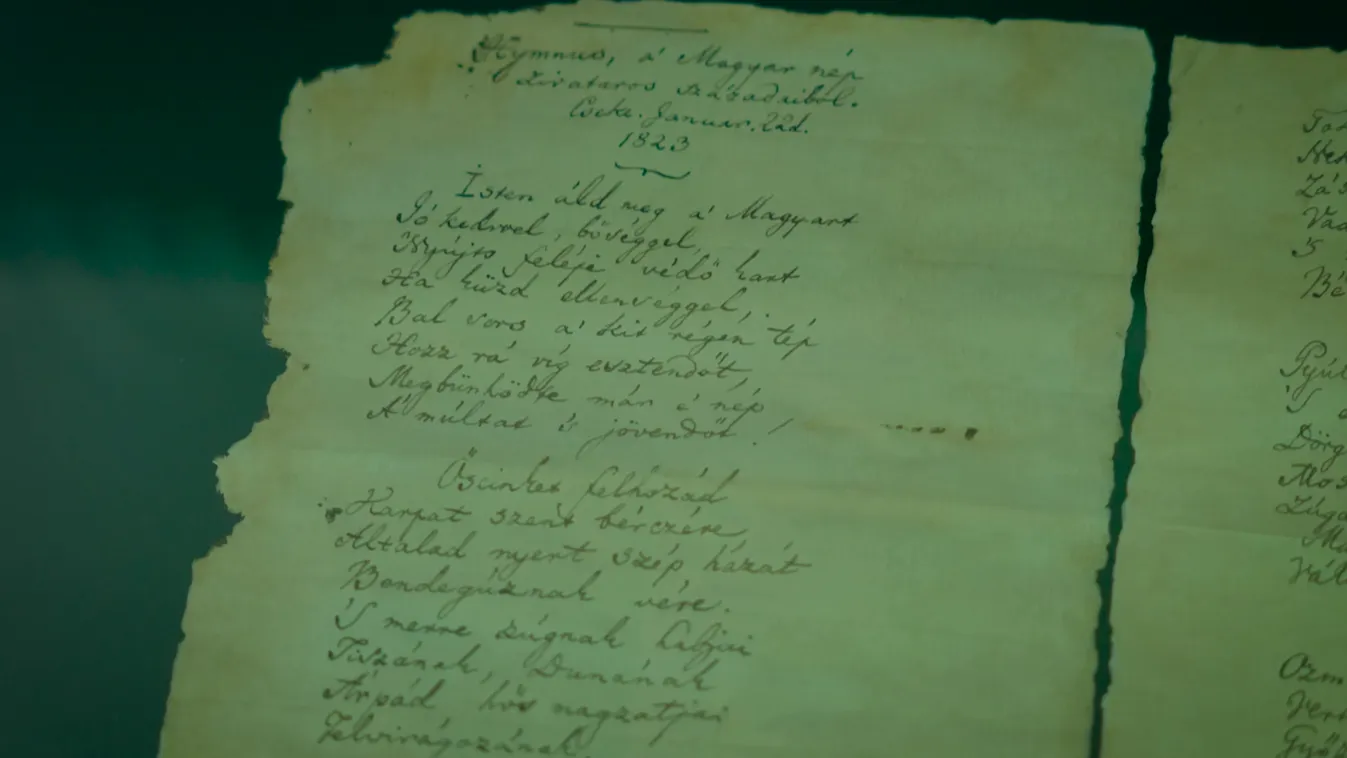 Hymnus, a' Magyar nép
zivataros századaiból.
Cseke. Januar. 22d.
1823
Isten áld meg a' Magyart
Jó kedvvel, bőséggel,
Nyújts feléje védő kart
Ha küzd ellenséggel,
Bal sors a' kit régen tép
Hozz rá víg esztendőt,
Megbünhödte már e' nép
A' múltat 's jövendőt!
Őseinket felhozád
Kárpát szent bérczére
Általad nyert szép hazát
Bendegúznak vére.
'S merre zúgnak habjai
Tiszának, Dunának
Árpád hős magzatjai
Felvirágozának.
Vad
'S
Bé
'S
Dörg
Zúg
Vál
Ozm
Győ